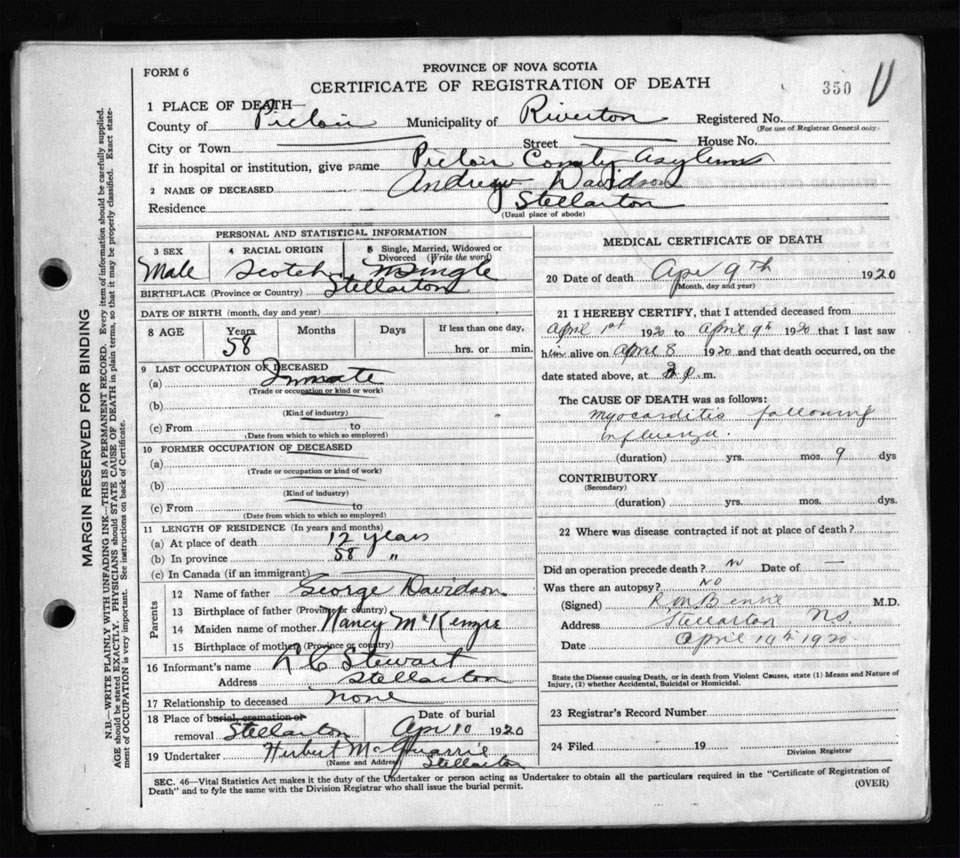 PROVINCE OF NOVA SCOTIA
FORM 6
CERTIFICATE OF REGISTRATION OF DEATH
350
1 PLACE OF DEATH—
County of Pictou Municipality of Riverton Registered No.
(For use of Registrar General only)
City or Town Street House No.
If in hospital or institution, give name Pictou County Asylum
2 NAME OF DECEASED Andrew Davidson
Residence Stellarton
(Usual place of abode)
PERSONAL AND STATISTICAL INFORMATION
3 SEX 4 RACIAL ORIGIN 5 Single, Married, Widowed or Divorced (Write the word)
Male Scotch Single
BIRTHPLACE (Province or Country) Stellarton
DATE OF BIRTH (month, day and year)
8 AGE Years Months Days If less than one day,
58 hrs. or min.
9 LAST OCCUPATION OF DECEASED
(a) Inmate
(Trade or occupation or kind or work)
(b)
(Kind of industry)
(c) From to
(Date from which to which so employed)
10 FORMER OCCUPATION OF DECEASED
(a)
(Trade or occupation or kind of work)
(b)
(Kind of industry)
(c) From to
(Date from which to which so employed)
11 LENGTH OF RESIDENCE (In years and months)
(a) At place of death 12 years
(b) In province 58 "
(c) In Canada (if an immigrant)
Parents
12 Name of father George Davidson
13 Birthplace of father (Province or country)
14 Maiden name of mother Nancy McKenzie
15 Birthplace of mother (Province or country)
16 Informant's name Stewart
Address Stellarton
17 Relationship to deceased None
18 Place of burial, cremation or removal Stellarton
Date of burial Apr 10 1920
19 Undertaker Herbert McQuarrie
(Name and Address) Stellarton
MEDICAL CERTIFICATE OF DEATH
20 Date of death Apr 9th 1920
(Month, day and year)
21 I HEREBY CERTIFY, that I attended deceased from
April 1st 1920 to April 9th 1920 that I last saw
him alive on April 8 1920 and that death occurred, on the
date stated above, at m.
The CAUSE OF DEATH was as follows:
Myocarditis following
influenza.
(duration) yrs. mos. 9 dys
CONTRIBUTORY
(Secondary)
(duration) yrs. mos. dys.
22 Where was disease contracted if not at place of death?
Did an operation precede death? No Date of —
Was there an autopsy? No
(Signed) M.D.
Address Stellarton N.S.
Date April 1920
State the Disease causing Death, or in Death from Violent Causes, state (1) Means and Nature of
Injury, (2) whether Accidental, Suicidal or Homicidal.
23 Registrar's Record Number
24 Filed 19
Division Registrar
SEC. 46—Vital Statistics Act makes it the duty of the Undertaker or person acting as Undertaker to obtain all the particulars required in the "Certificate of Registration of
Death" and to fyle the same with the Division Registrar who shall issue the burial permit.
(OVER)
MARGIN RESERVED FOR BINDING
N.B.—WRITE PLAINLY WITH UNFADING INK—THIS IS A PERMANENT RECORD. Every item of information should be carefully supplied.
AGE should be stated EXACTLY. PHYSICIANS should STATE CAUSE OF DEATH in plain terms, so that it may be properly classified. Exact statement of OCCUPATION is very important. See instructions on back of Certificate.